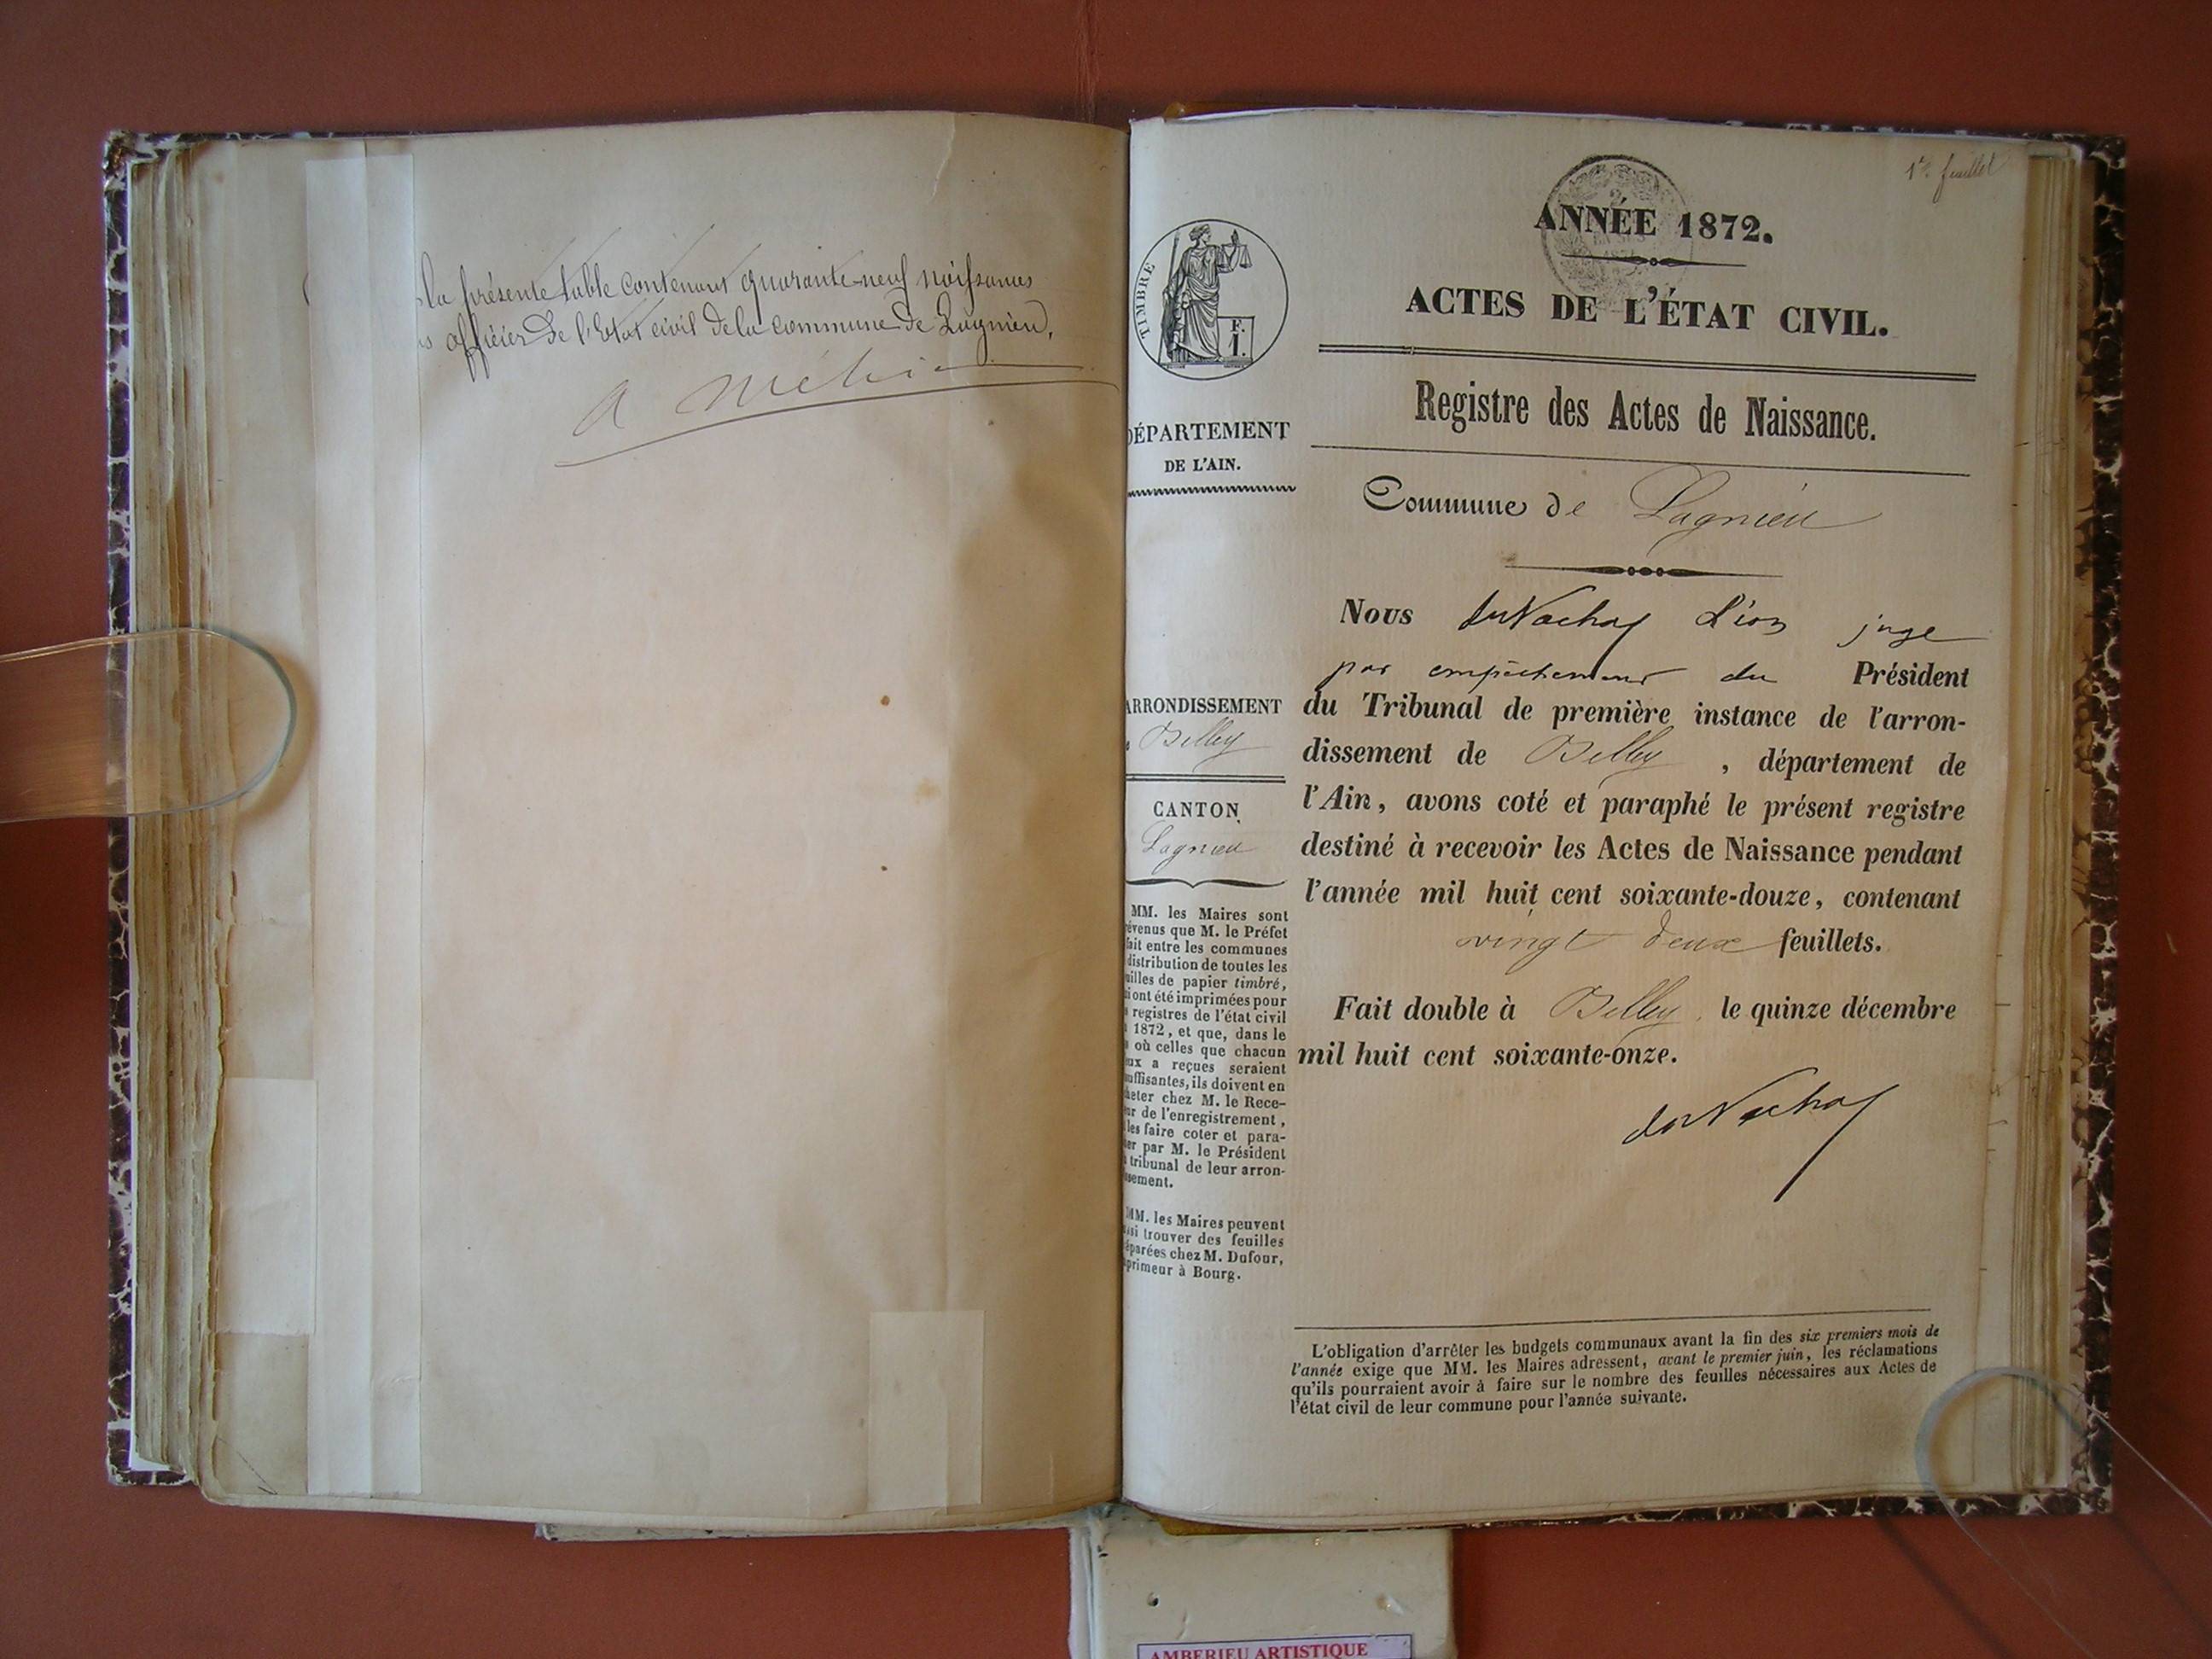 la présente table contenant quarante-neuf naissances
officier de l'Etat civil de la commune de Lagnieu,
1er feuillet
ANNÉE 1872.
ACTES DE L'ÉTAT CIVIL.
TIMBRE
F.
I.
Registre des Actes de Naissance.
DÉPARTEMENT
DE L'AIN.
Commune de Lagnieu
ARRONDISSEMENT
Belley
CANTON
Lagnieu
MM. les Maires sont
révenus que M. le Préfet
fait entre les communes
distribution de toutes les
uilles de papier timbré,
i ont été imprimées pour
registres de l'état civil
1872, et que, dans le
où celles que chacun
eux a reçues seraient
uffisantes, ils doivent en
heter chez M. le Rece-
eur de l'enregistrement,
les faire coter et para-
er par M. le Président
tribunal de leur arron-
ssement.
MM. les Maires peuvent
ssi trouver des feuilles
éparées chez M. Dufour,
primeur à Bourg.
Nous Léon juge
par empêchement du Président
du Tribunal de première instance de l'arron-
dissement de Belley, département de
l'Ain, avons coté et paraphé le présent registre
destiné à recevoir les Actes de Naissance pendant
l'année mil huit cent soixante-douze, contenant
vingt deux feuillets.
Fait double à Belley, le quinze décembre
mil huit cent soixante-onze.
L'obligation d'arrêter les budgets communaux avant la fin des six premiers mois de
l'année exige que MM. les Maires adressent, avant le premier juin, les réclamations
qu'ils pourraient avoir à faire sur le nombre des feuilles nécessaires aux Actes de
l'état civil de leur commune pour l'année suivante.
AMBERIEU ARTISTIQUE